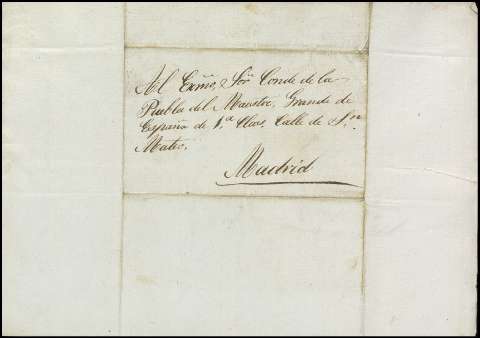 Al Exmo, Sor. Conde de la
Puebla del Maestre, Grande de
España de 1.a Clas, Calle de Sn.
Mateo.
Madrid